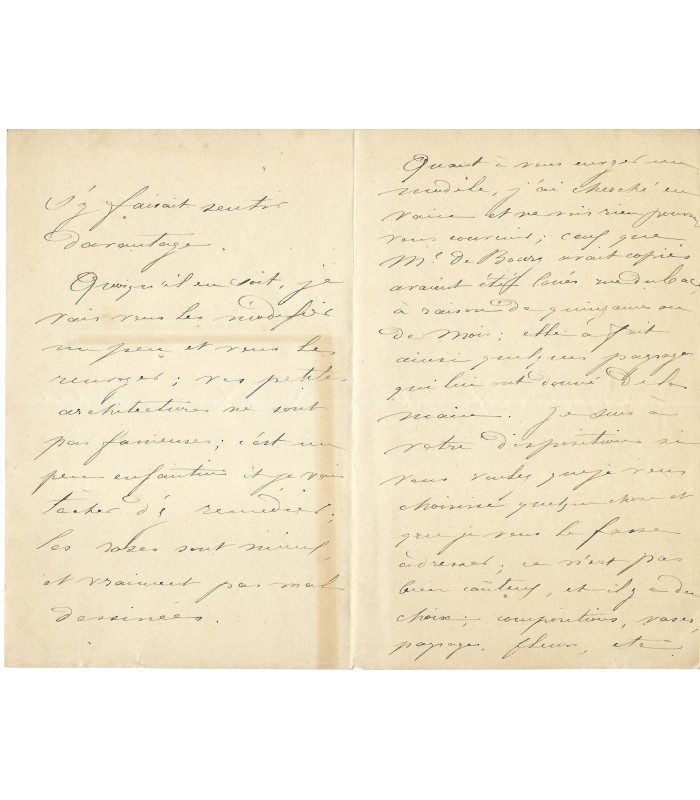 s'y faisait sentir
davantage.
Quoiqu'il en soit, je
vais vous les modifier
un peu et vous les
renvoyer; vos petites
architectures ne sont
pas fameuses; c'est un
peu enfantin et je vais
tâcher d'y remédier;
les roses sont mieux,
et vraiment pas mal
dessinées.
Quant à vous envoyer un
modèle, j'ai cherché en
vaine et ne vois rien pouvant
vous convenir; ceux que
Mr. De Bours avait copiés
avaient été loués rue du bac
à raison de quinzaine ou
de mois; elle a fait
ainsi quelques paysages
qui lui ont donné de la
main. Je suis à
votre disposition si
vous voulez que je vous
choisisse quelque chose et
que je vous le fasse
adresser; ce n'est pas
bien coûteux, et il y a du
choix; compositions, vases,
paysages, fleurs, etc